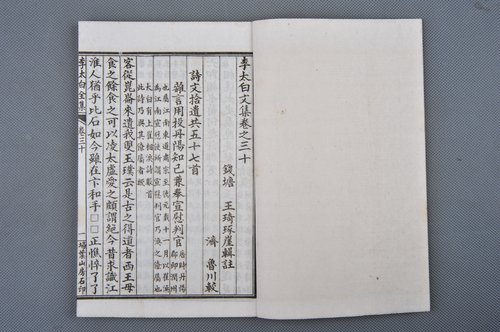 李太白文集卷之三十
錢塘 王琦琢崖輯註
濟 魯川較
詩文拾遺共五十七首
雜言用投丹陽知己兼奉宣慰判官
客從崑崙來遺我雙玉璞云是古之得道者西王母
食之餘食之可以凌太虛受之頗謂絕今昔求識江
淮人猶乎比石如今雖在卞和手□□正憔悴了了
李太白全集 卷三十
一 掃葉山房石印